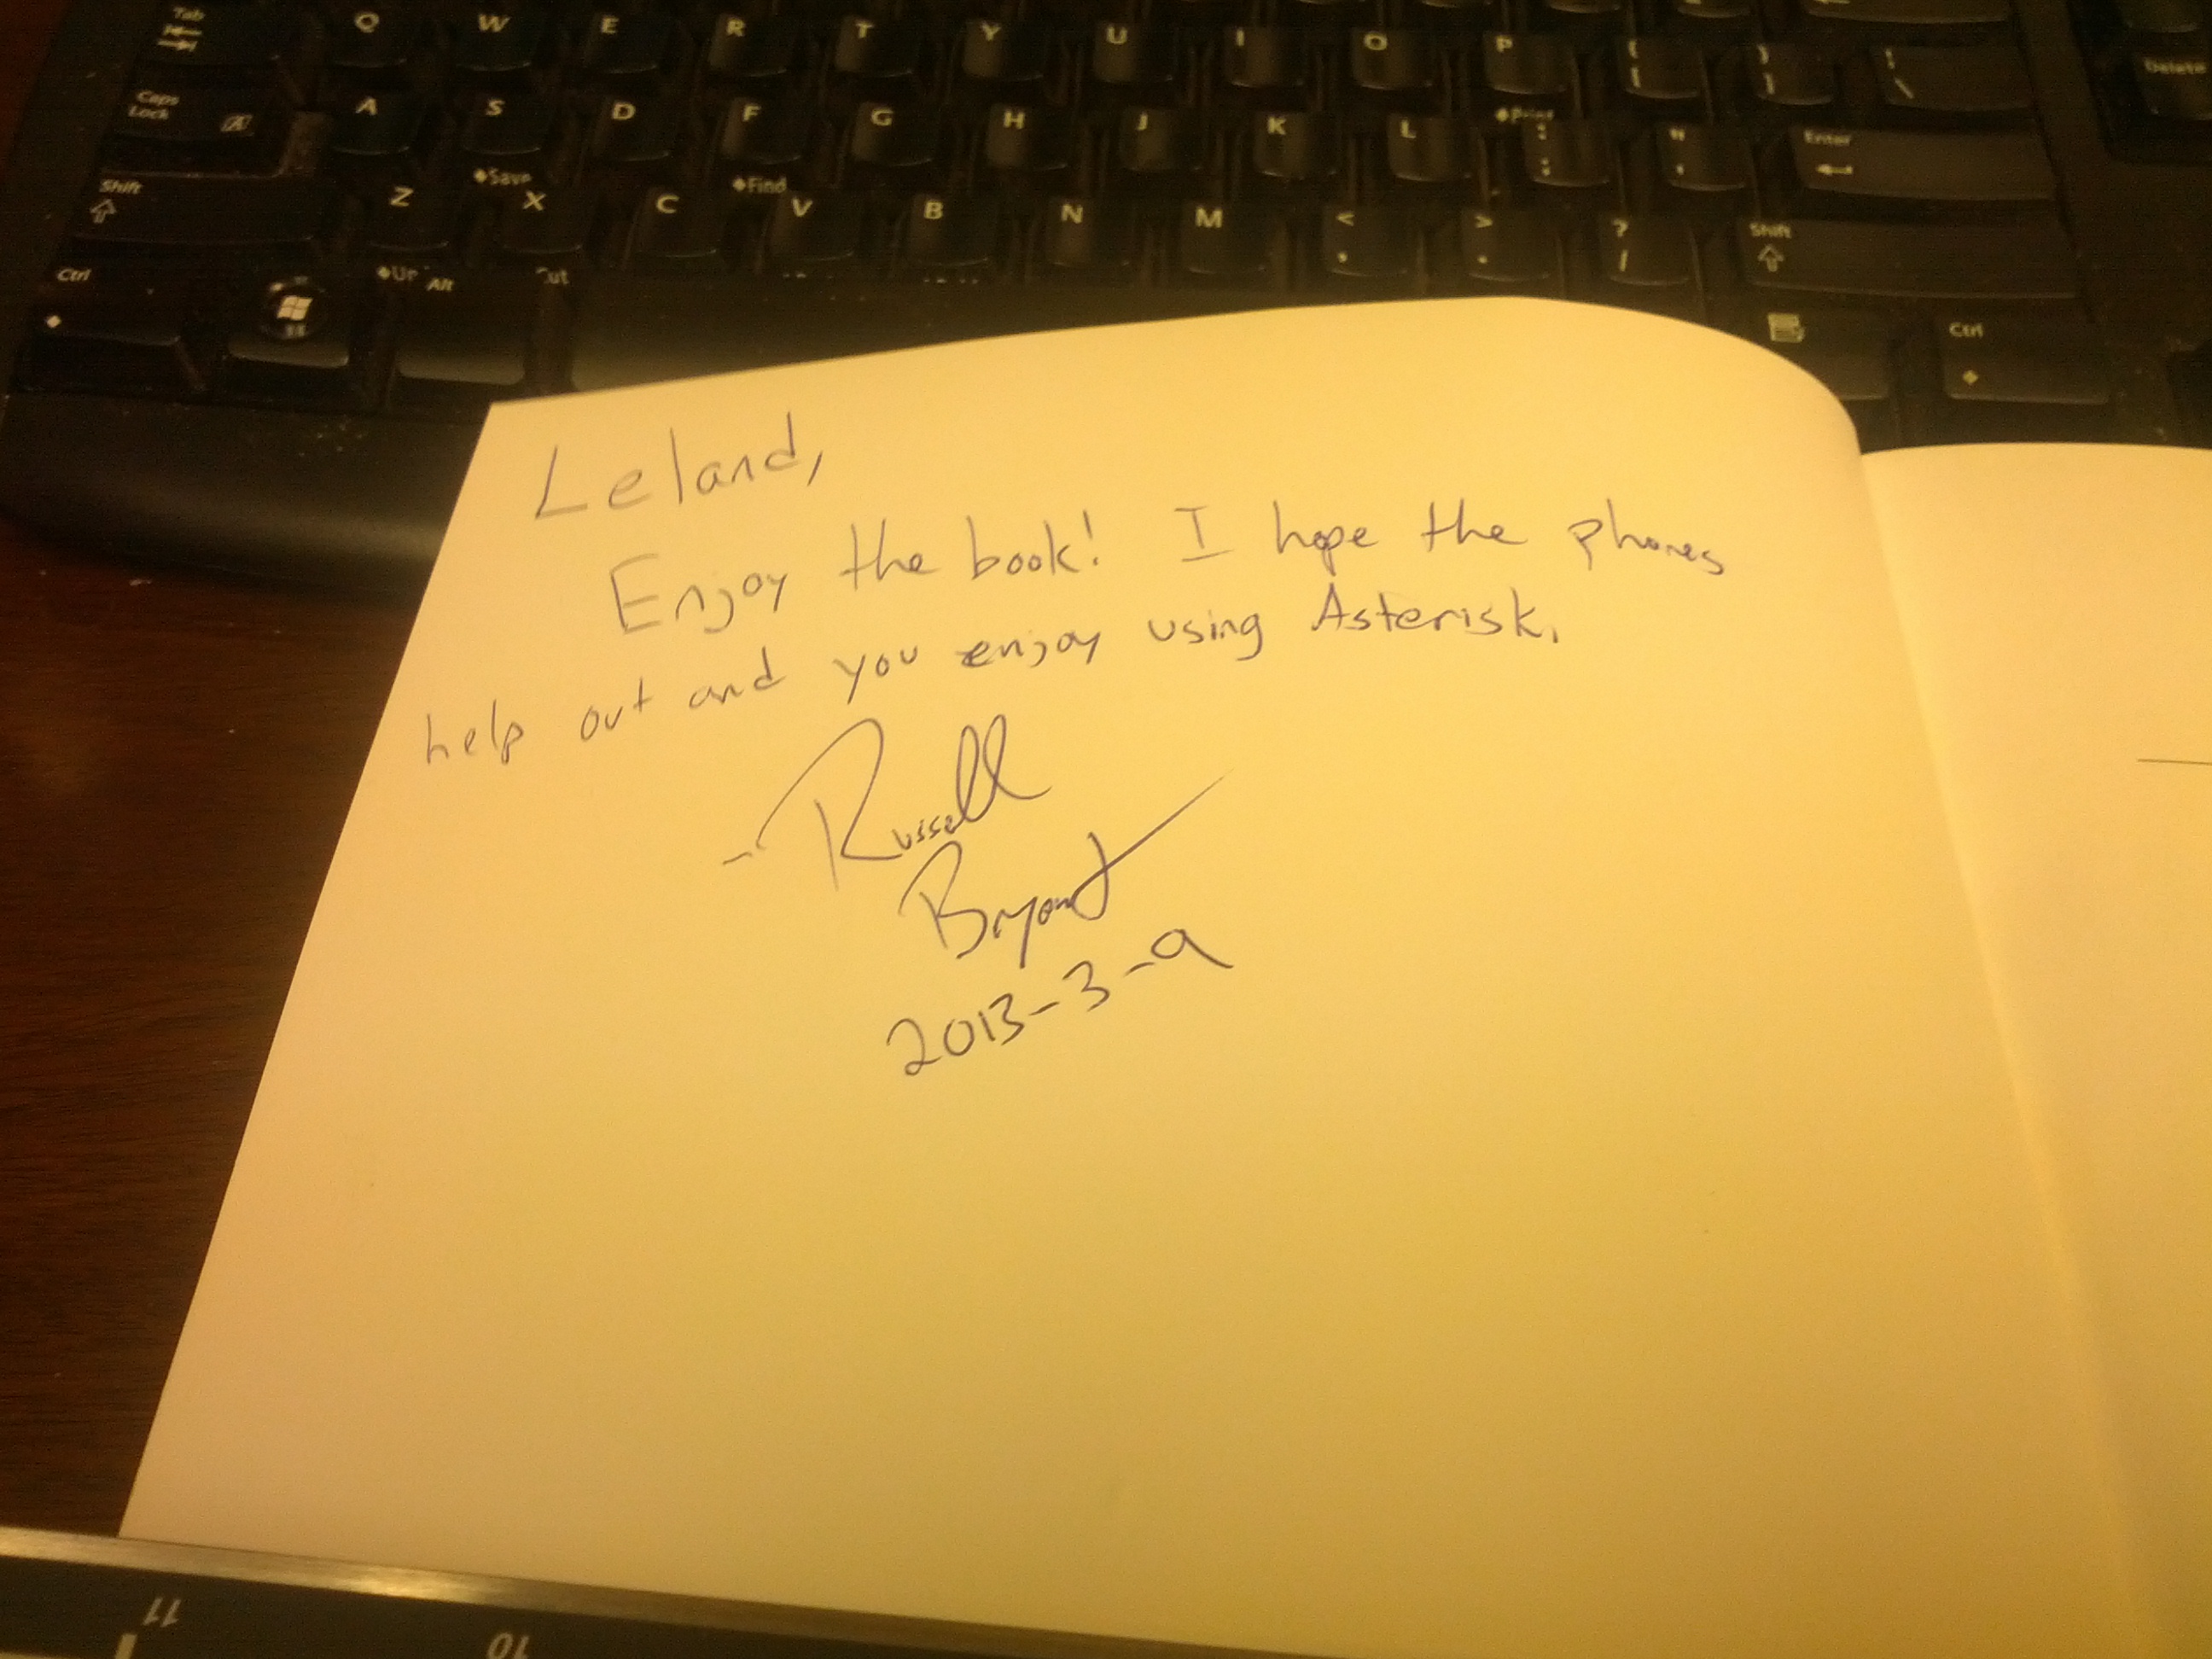 Tab Q W E R T Y U I O P { [ } ] | \ Delete
Caps Lock A A S D F G H J K L ◆Print : ; " ' Enter
Shift Z ◆Save X C ◆Find V B N M < , > . ? / Shift
Ctrl Alt Ctrl
Leland,
Enjoy the book! I hope the phones
help out and you enjoy using Asterisk.
- Russell
Bryant
2013-3-9
11 10